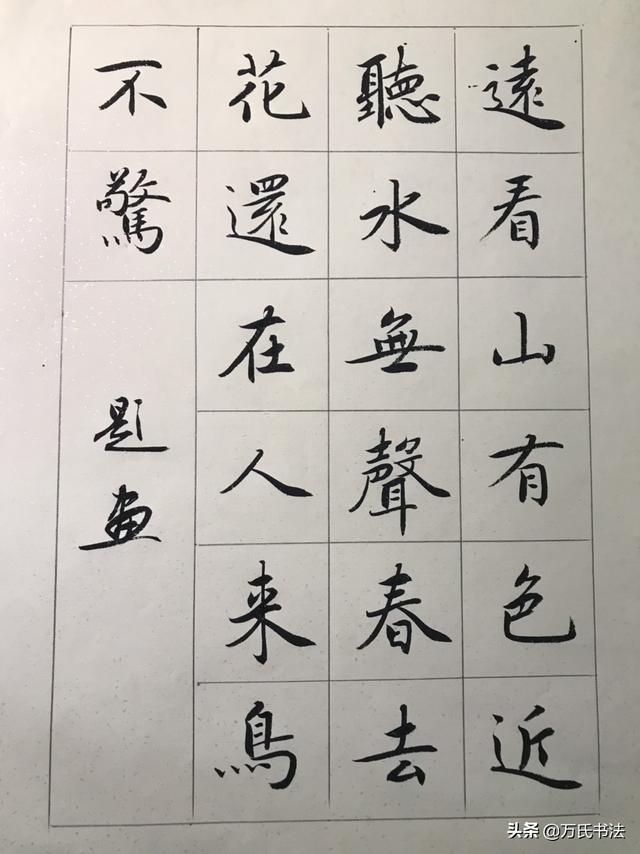 遠看山有色近
聽水無聲春去
花還在人来鳥
不驚
题画
头条 @万氏书法